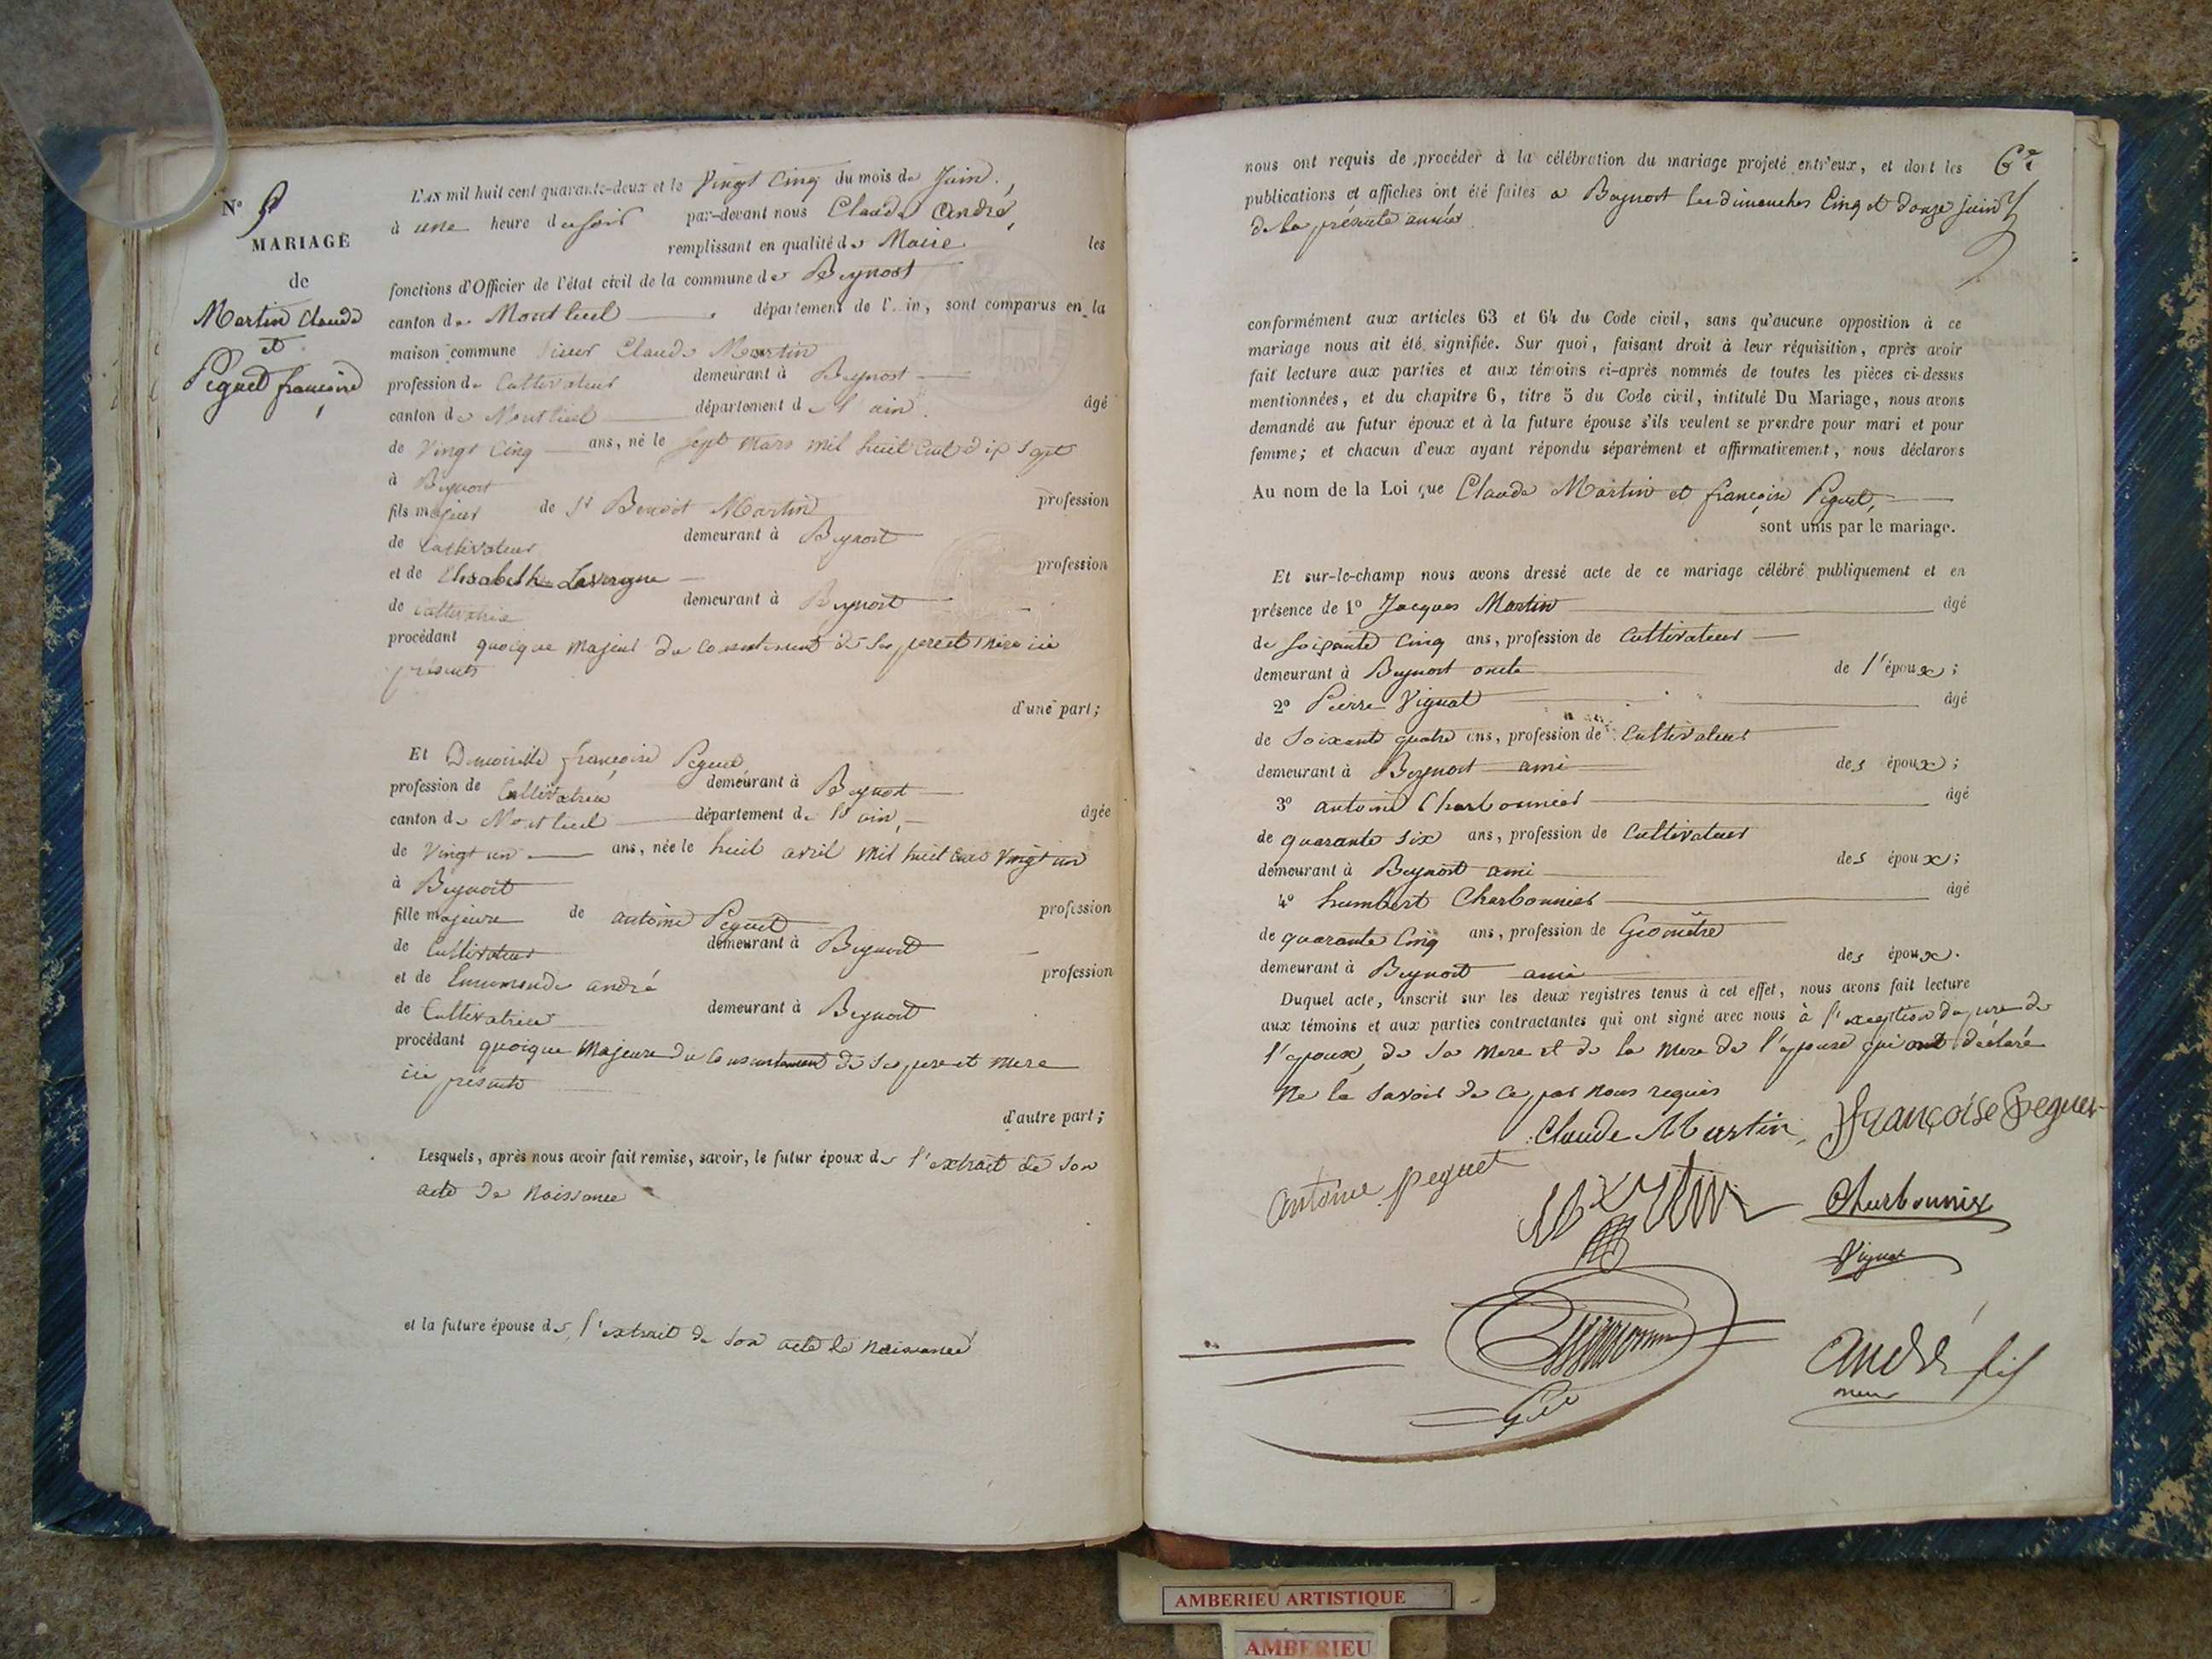 N° 9
MARIAGE
de
Martin Claude
et
Peguet françoise
L'AN mil huit cent quarante-deux et le Vingt Cinq du mois de Juin,
à une heure du soir par-devant nous Claude André,
remplissant en qualité de Maire les
fonctions d'Officier de l'état civil de la commune de Beynost
canton de Montluel département de l'Ain, sont comparus en la
maison commune Sieur Claude Martin
profession de Cultivateur demeurant à Beynost
canton de Montluel département de l'ain. âgé
de Vingt Cinq ans, né le sept Mars mil huit Cent dix Sept
à Beynost
fils majeur de Sr Benoit Martin profession
de Cultivateur demeurant à Beynost
et de Elisabeth Lavergne profession
de Cultivatrice demeurant à Beynost
procédant quoique Majeur du Consentement de ses pere et Mere ici
présents
d'une part;
Et Demoiselle françoise Peguet
profession de Cultivatrice demeurant à Beynost
canton de Montluel département de l'ain, âgée
de Vingt un ans, née le huit avril Mil huit Cent Vingt un
à Beynost
fille majeure de antoine Peguet profession
de Cultivateur demeurant à Beynost
et de Ennemonde andré profession
de Cultivatrice demeurant à Beynost
procédant quoique Majeure du Consentement de Ses pere et mere
ici présents
d'autre part;
Lesquels, après nous avoir fait remise, savoir, le futur époux de l'extrait de Son
acte de Naissance
et la future épouse de l'extrait de Son acte de Naissance
nous ont requis de procéder à la célébration du mariage projeté entr'eux, et dont les
publications et affiches ont été faites a Beynost les dimanches Cinq et douze juin
de la présente année
conformément aux articles 63 et 64 du Code civil, sans qu'aucune opposition à ce
mariage nous ait été signifiée. Sur quoi, faisant droit à leur réquisition, après avoir
fait lecture aux parties et aux témoins ci-après nommés de toutes les pièces ci-dessus
mentionnées, et du chapitre 6, titre 5 du Code civil, intitulé Du Mariage, nous avons
demandé au futur époux et à la future épouse s'ils veulent se prendre pour mari et pour
femme; et chacun d'eux ayant répondu séparément et affirmativement, nous déclarons
Au nom de la Loi que Claude Martin et françoise Peguet,
sont unis par le mariage.
Et sur-le-champ nous avons dressé acte de ce mariage célébré publiquement et en
présence de 1° Jacques Martin âgé
de Soixante Cinq ans, profession de Cultivateur
demeurant à Beynost oncle de l'époux;
2° Pierre Vignat âgé
de Soixante quatre ans, profession de Cultivateur
demeurant à Beynost ami des époux;
3° antoine Charbonnier âgé
de quarante Six ans, profession de Cultivateur
demeurant à Beynost ami des époux;
4° humbert Charbonnier âgé
de quarante Cinq ans, profession de Géomètre
demeurant à Beynost ami des époux.
Duquel acte, inscrit sur les deux registres tenus à cet effet, nous avons fait lecture
aux témoins et aux parties contractantes qui ont signé avec nous à l'exception du pere de
l'epoux, de Sa Mere et de la Mere de l'epouse qui ont déclaré
Ne le Savoir de Ce par Nous requis
Claude Martin françoise Peguet
antoine peguet Martin Charbonnier
Vignat
andré fils
AMBERIEU ARTISTIQUE
AMBERIEU